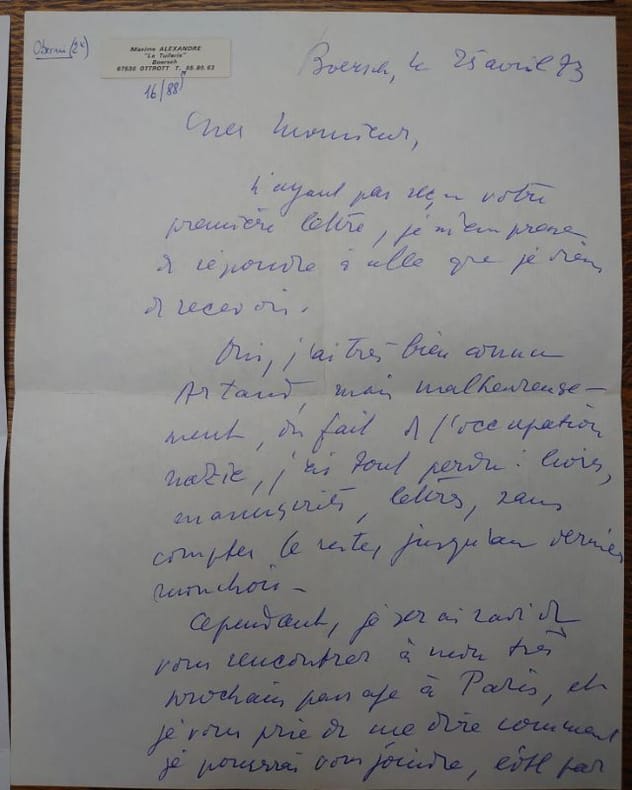 Obernai (2<)
Maxime ALEXANDRE
"La Tuilerie"
Boersch
67530 OTTROTT T. 95.80.63
16/88
Boersch, le 25 avril 73
Cher Monsieur,
N'ayant pas reçu votre
première lettre, je m'empresse
de répondre à celle que je viens
de recevoir.
Oui, j'ai très bien connu
Artaud, mais malheureuse-
ment, du fait de l'occupation
nazie, j'ai tout perdu : livres,
manuscrits, lettres, sans
compter le reste, jusqu'au dernier
mouchoir.
Cependant, je serai ravi de
vous rencontrer à mon très
prochain passage à Paris, et
je vous prie de me dire comment
je pourrai vous joindre, par